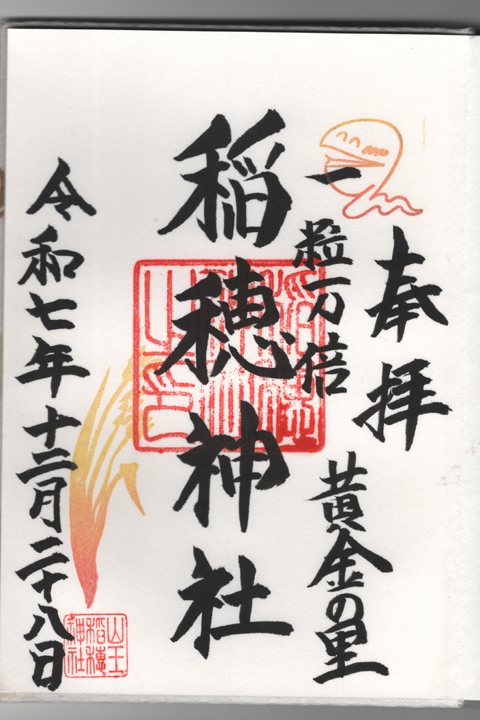 奉拝
一粒万倍
黄金の里
稲穂神社
令和七年十二月二十八日
山王
稲穂
神社